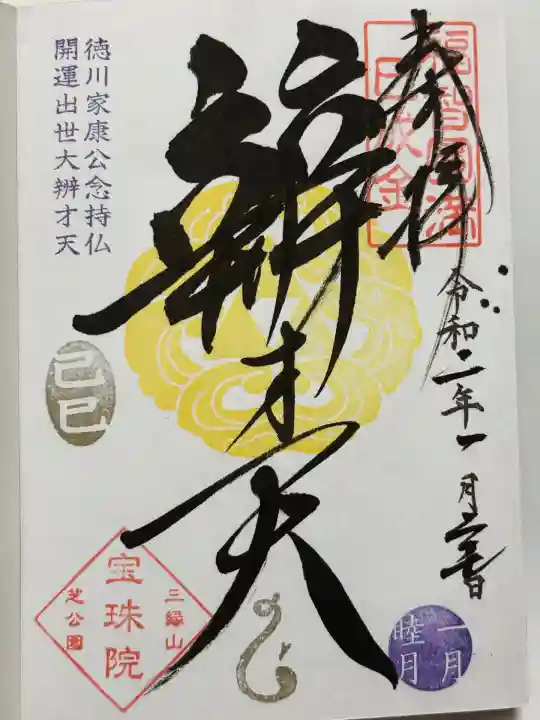 奉拝
福智圓満
巳成金
令和二年一月
一月
睦月
辨才天
徳川家康公念持仏
開運出世大辨才天
己巳
三縁山
宝珠院
芝公園